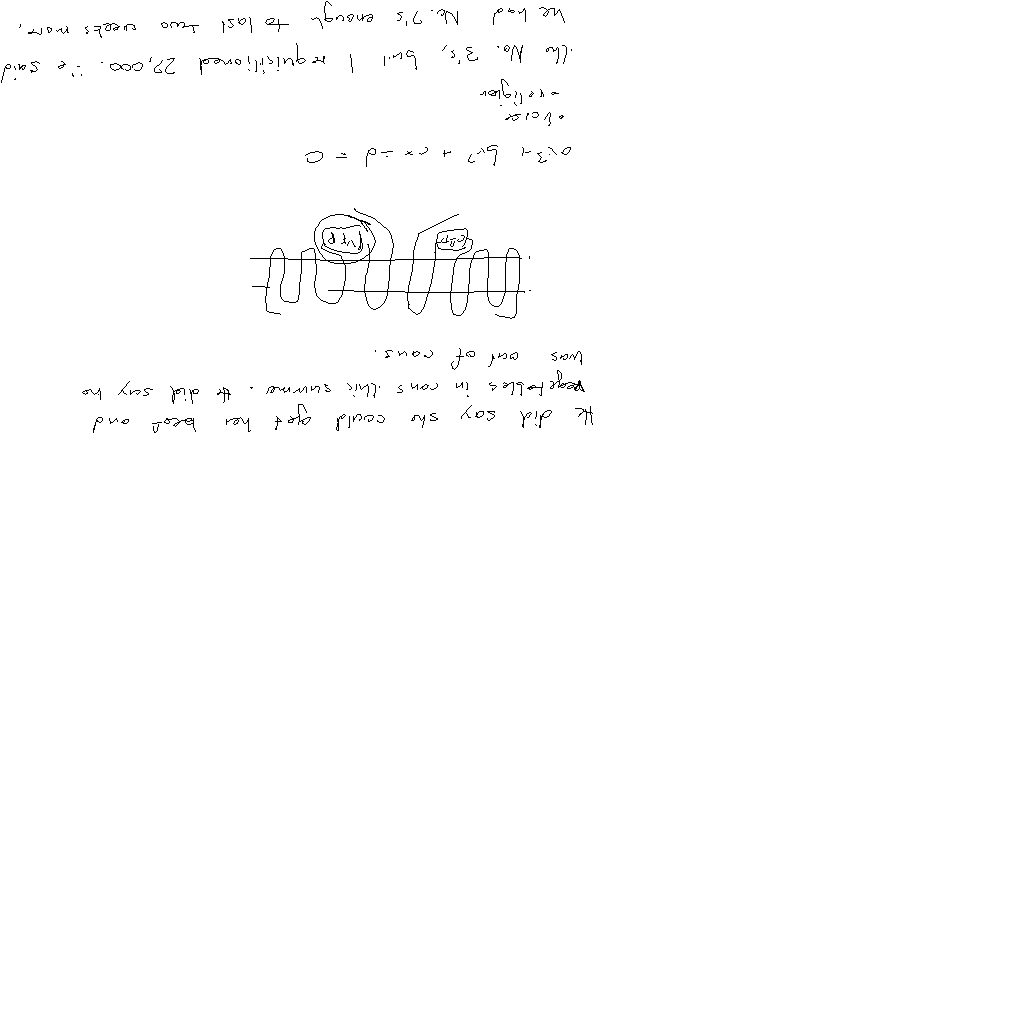 He did say she could get her beet and
vegetables in cans this summe. He did say he
was out of cans.
VTP
cap
ax3 + bx2 + cx + d = 0
• race
• religion
the No. 3's, but I requisitioned 29,000. He said
he had No. 2's enough to last two weeks more,